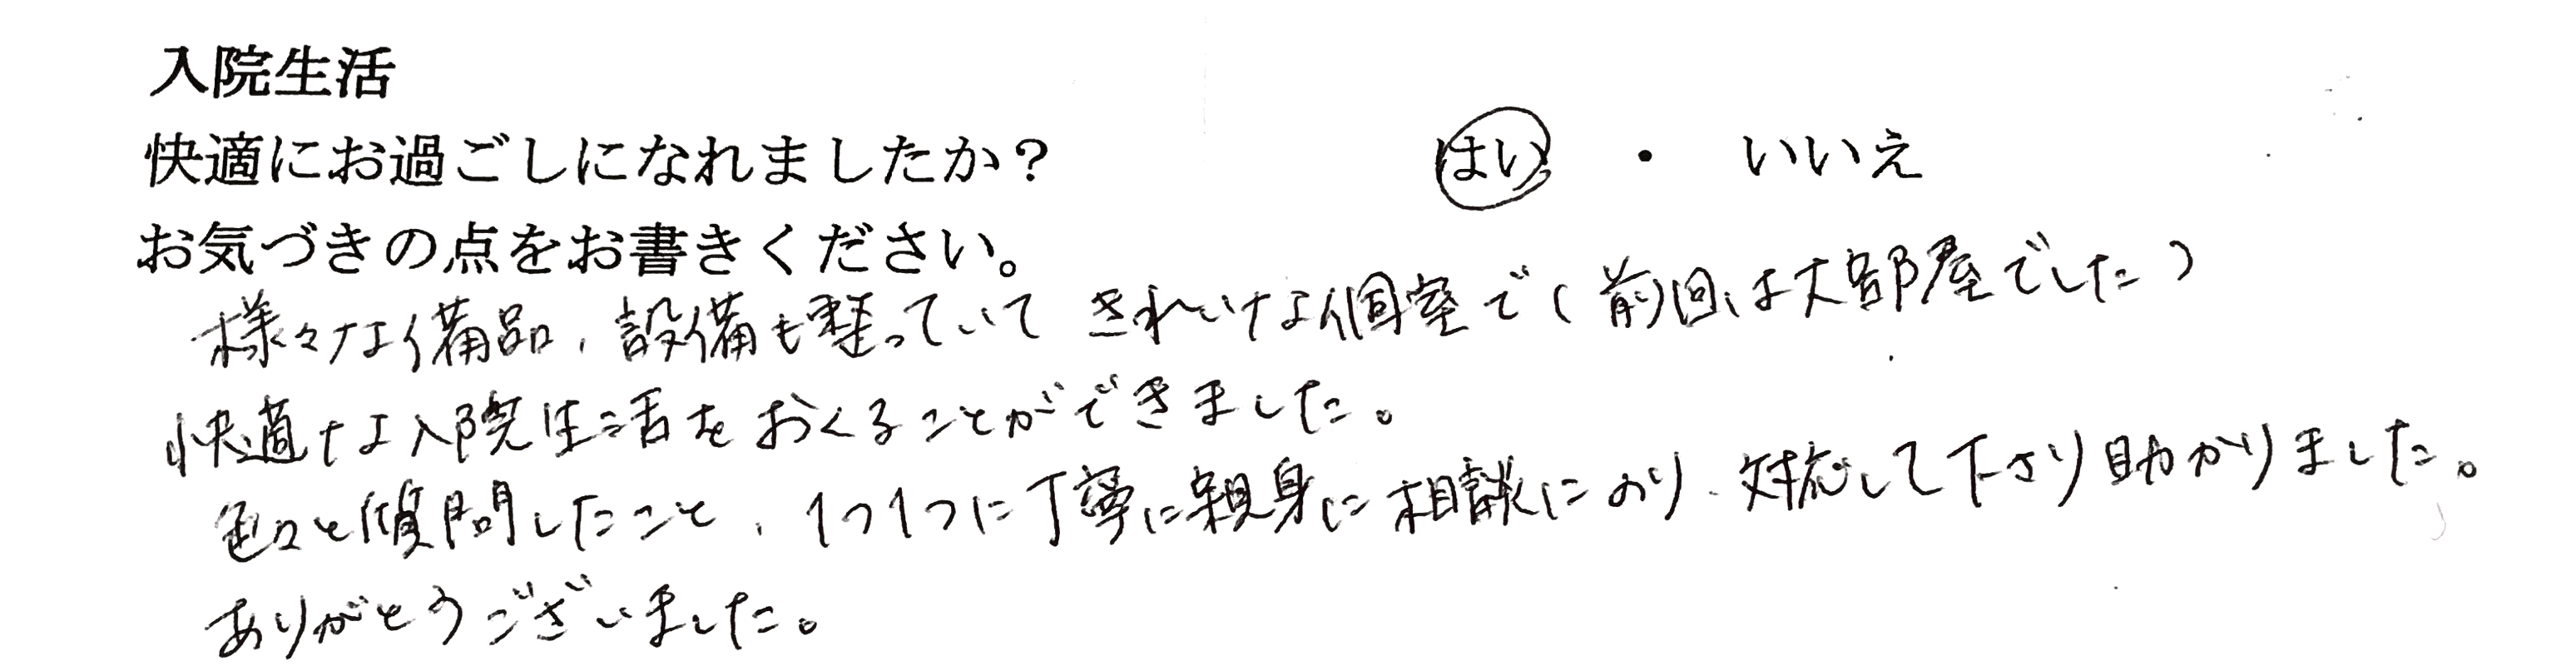 入院生活
快適にお過ごしになれましたか? はい ・ いいえ
お気づきの点をお書きください。
様々な備品、設備も整っていて きれいな個室で(前回は大部屋でした)
快適な入院生活をおくることができました。
色々と質問したこと、1つ1つに丁寧に親身に相談にのり、対応して下さり助かりました。
ありがとうございました。